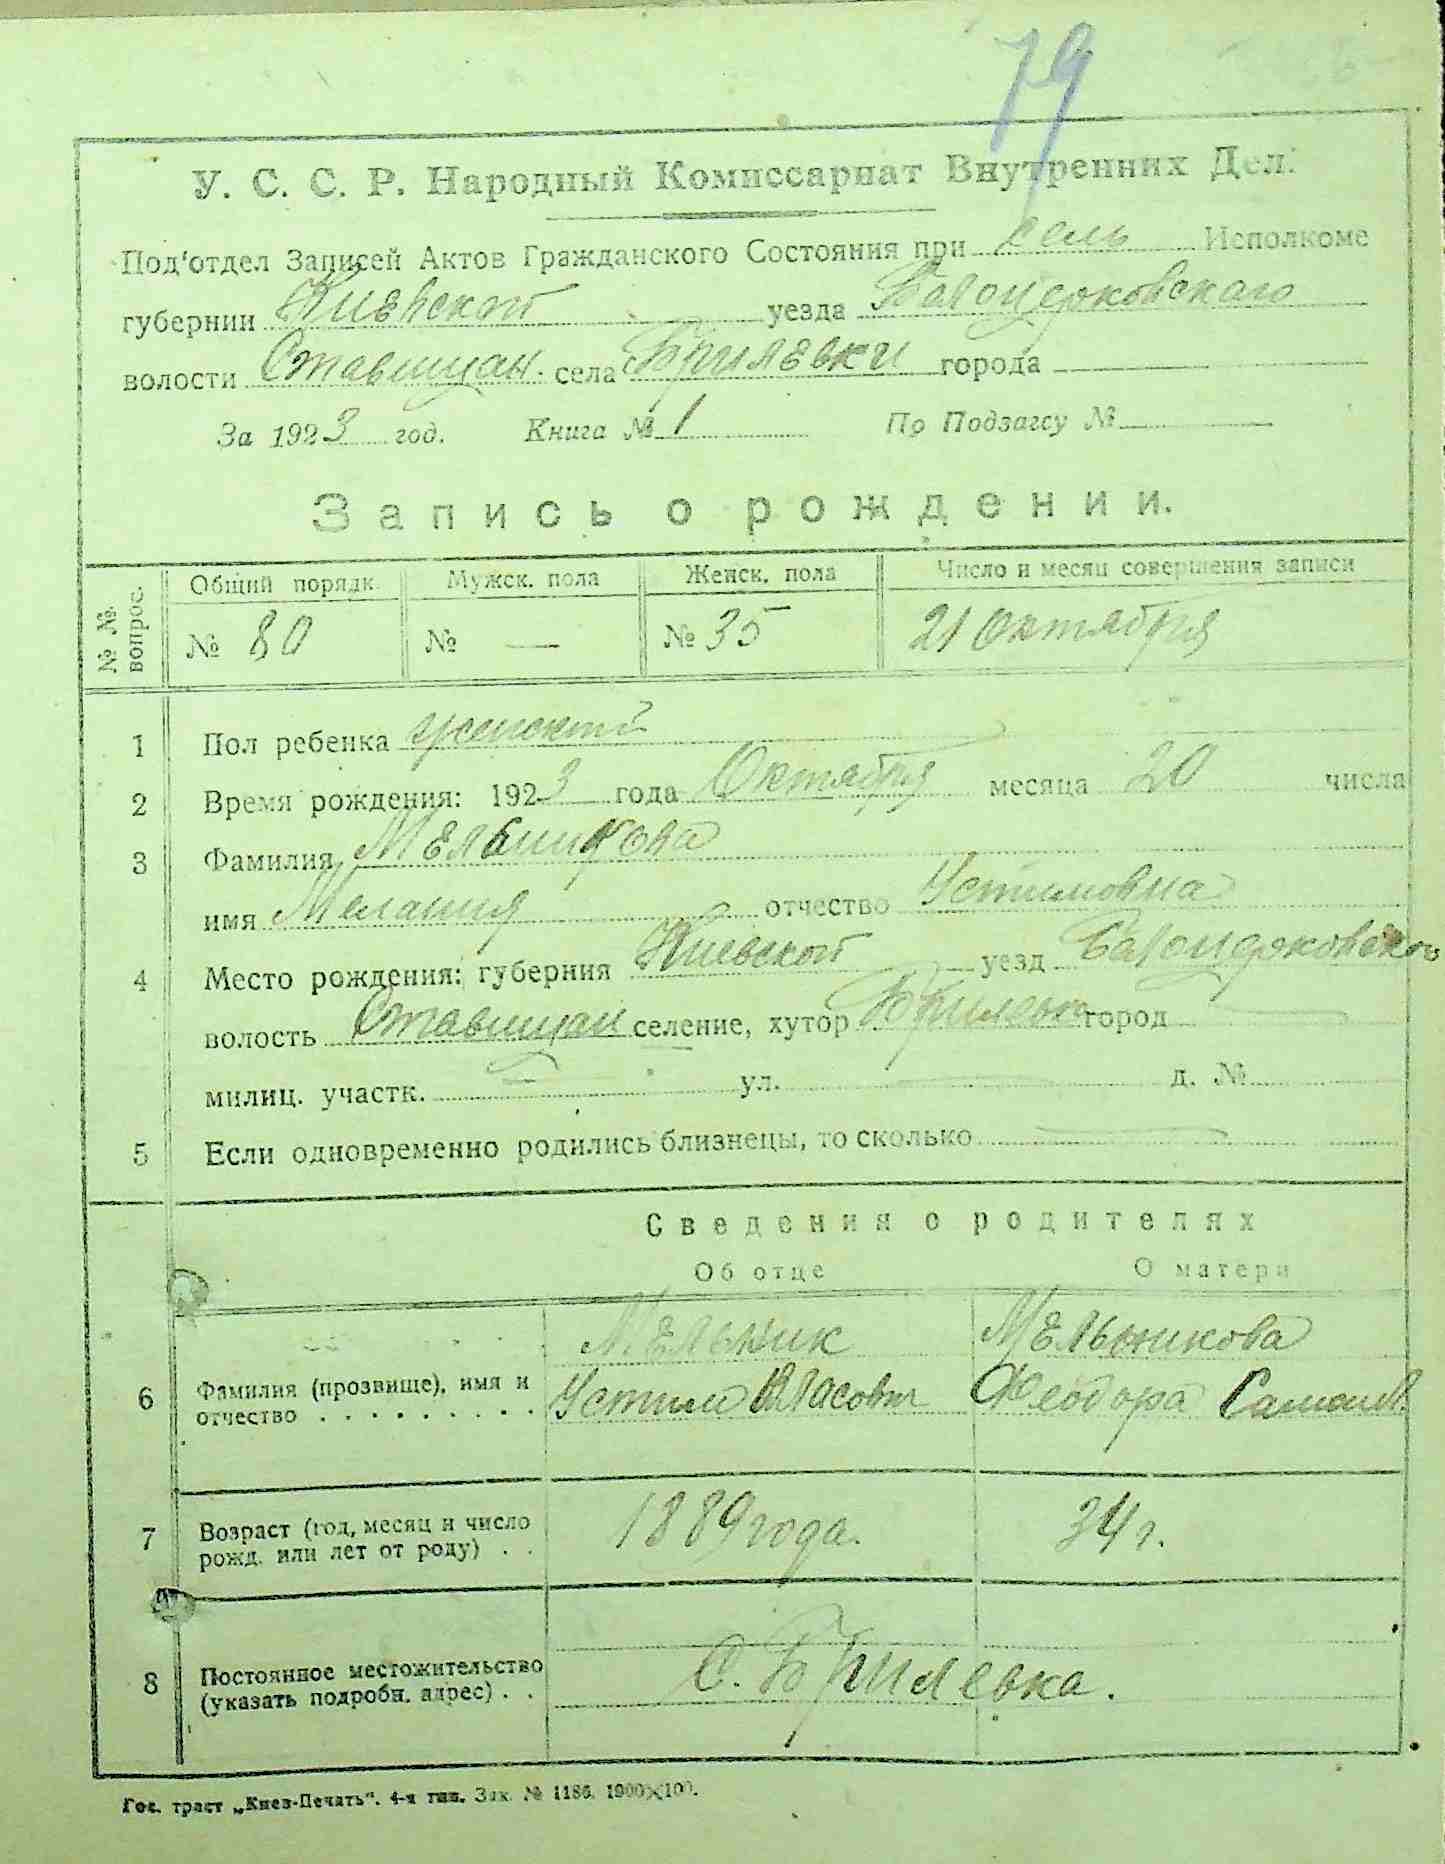 79
У. С. С. Р. Народный Комиссариат Внутренних Дел.
Под'отдел Записей Актов Гражданского Состояния при сель Исполкоме
губернии Киевской уезда
волости Ставищан. села Брилевки города
За 1923 год. Книга № 1 По Подзагсу №
Запись о рождении.
№ № вопрос. Общий порядк. Мужск. пола Женск. пола Число и месяц совершения записи
№ 80 № — № 35 21 Октября
1 Пол ребенка женский
2 Время рождения: 1923 года Октября месяца 20 числа
3 Фамилия Мельникова
имя Мелания отчество Устимовна
4 Место рождения: губерния Киевской уезд
волость Ставищан селение, хутор Брилевка город
милиц. участк. — ул. — д. №
5 Если одновременно родились близнецы, то сколько —
Сведения о родителях
Об отце О матери
Мельник Мельникова
6 Фамилия (прозвище), имя и Устим Власович Феодора
отчество . . . . . . . . .
7 Возраст (год, месяц и число 1889 года. 34 г.
рожд. или лет от роду) . .
8 Постоянное местожительство С. Брилевка.
(указать подробн. адрес) . .
Гос. трест „Киев-Печать". 4-я тип. Зак. № 1186. 1900×100.